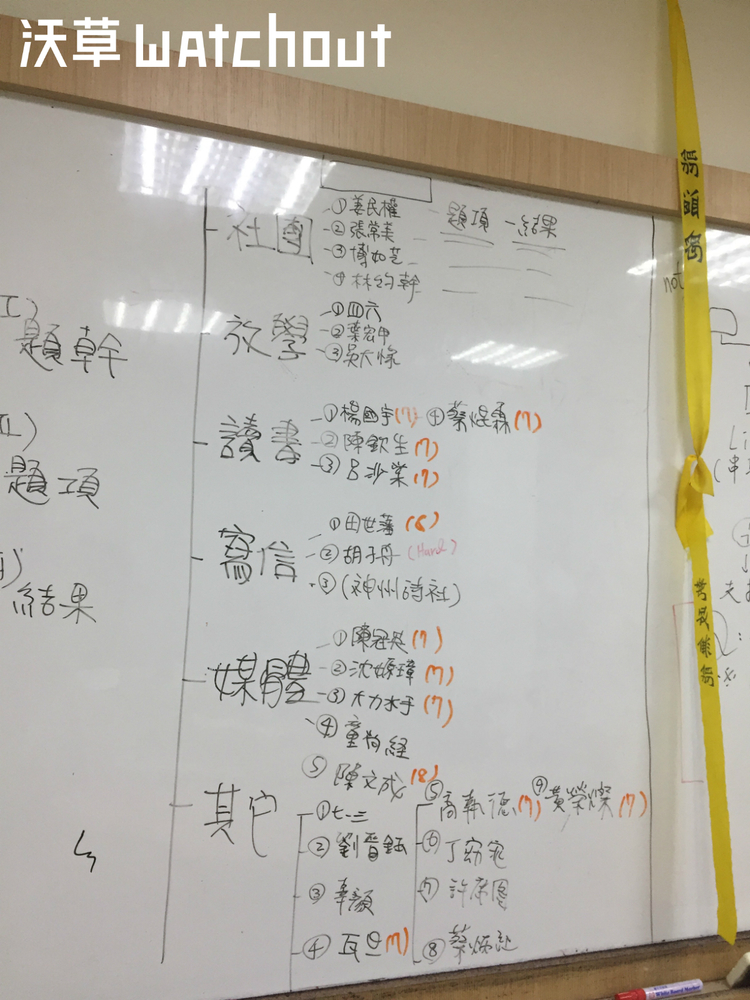 沃草 watchout
社團
①姜民權
②張常美
③博如芝
④林約幹
題項 - 結果
放學
①四六
②葉宏甲
③吳大祿
讀書
①楊國宇(7) ④蔡焜霖(7)
②陳欽生(7)
③呂沙棠(7)
寫信
①田世藩(6)
②胡子丹(Hank)
③(神州詩社)
媒體
①陳冠(7)
②沈嫄璋(7)
③大力水手(7)
④童尚經
⑤陳文成(8)
其它
①七一三
②劉晉鈺
③辜顏
④瓦旦(7)
⑤高執德(7) ⑨黃榮燦(7)
⑥丁窈窕
⑦許席圖
⑧蔡炳紅
I)
題幹
題項
結果
not